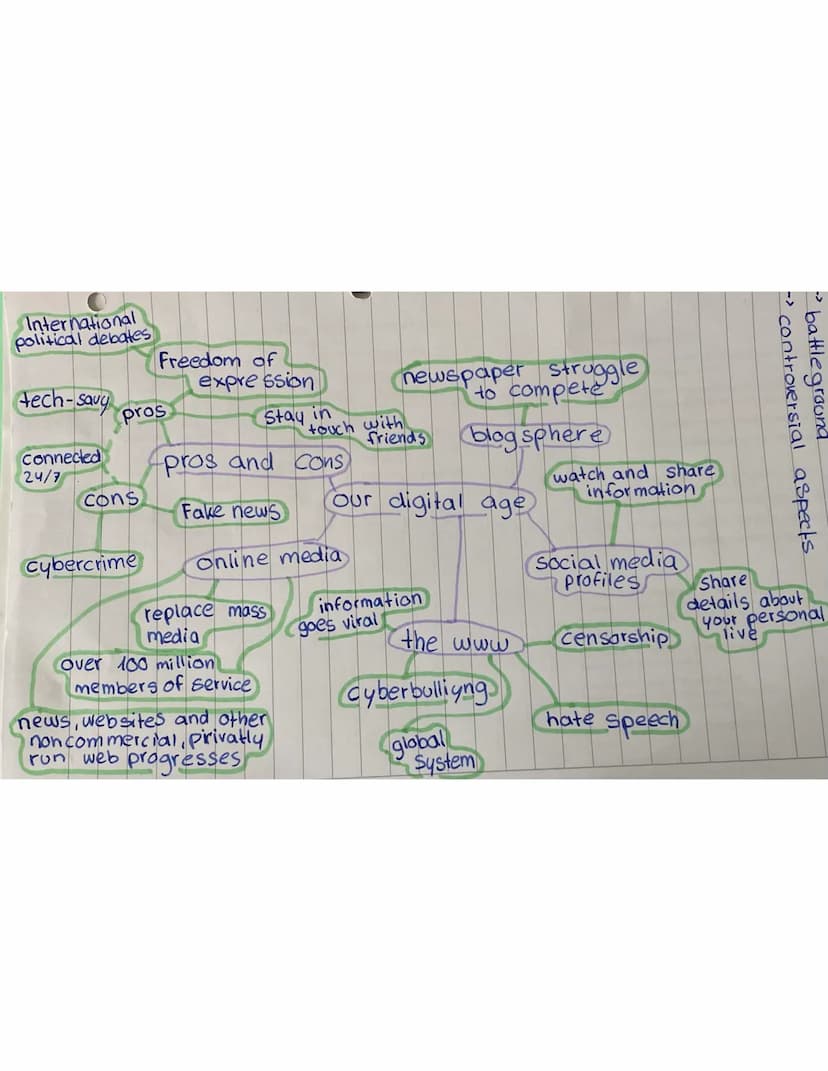 International
political debates
Freedom of
expression
tech-savy
pros
stay in
touch with
friends
connected
24/7
pros and cons
cons
Fake news
cybercrime
our digital age
newspaper struggle
to compete
blogsphere
watch and share
information
social media
profiles
share
details about
your personal
live
online media
replace mass
media
over 100 million
members of service
news, websites and other
noncommercial, pirivatly
run web progresses
information
goes viral
the www
censorship
cyberbulliyng
hate speech
global
system
-> battleground
-> controversial aspects